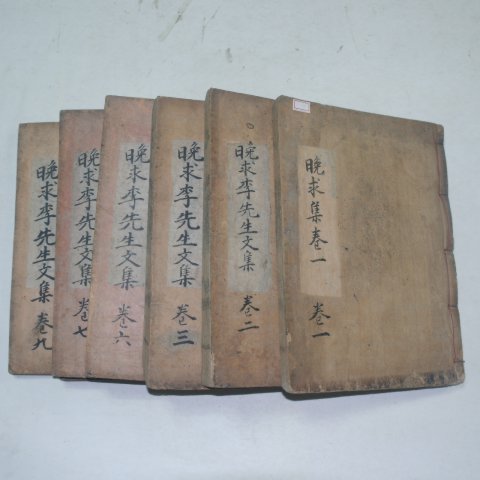 晚求集卷一
卷一
晚求李先生文集
卷二
晚求李先生文集
卷三
晚求李先生文集
卷六
晚求李先生文集
卷七
晚求李先生文集
卷九